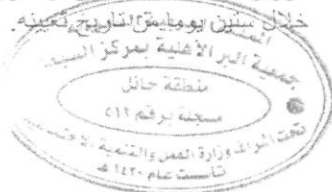 خلال سنين يوما من تاريخ تعيينه
جمعية البر الأهلية بمركز السبعان
منطقة حائل
مسجلة برقم ٤١٢
تحت إشراف وزارة العمل والتنمية الاجتماعية
تأسست عام ١٤٢٠ هـ